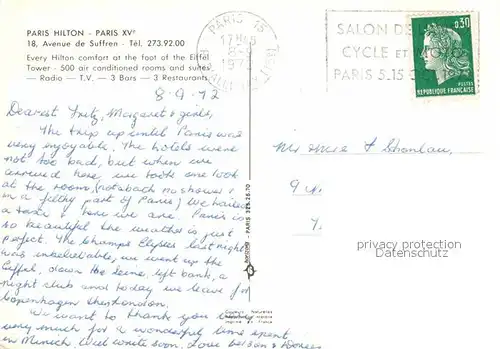 PARIS HILTON - PARIS XVe
18, Avenue de Suffren - Tél. 273.92.00
Every Hilton comfort at the foot of the Eiffel
Tower - 500 air conditioned rooms and suites
— Radio — T.V. — 3 Bars — 3 Restaurants
8-9-72
Dearest Fritz, Margaret & girls,
The trip up until Paris was
very enjoyable. The hotels were
not too bad, but when we
arrived here, we took one look
at the room (not a bath no shower &
in a filthy part of Paris) We hailed
a taxi & here we are. Paris is
so beautiful the weather is just
perfect. The Champs Elysees last night
was unbelievable, we went up the
Eiffel, down the Seine, left bank, a
night club and today we leave for
Copenhagen then London.
We want to thank you
very much for a wonderful time spent
in Munich, will write soon. Love
PARIS 15
17H45
8-9
1972
SALON DE
CYCLE ET
PARIS 5.15 OC
0,30
POSTES
REPUBLIQUE FRANÇAISE
PARIS 325.25.70
personenbezogene Daten
Datenschutz